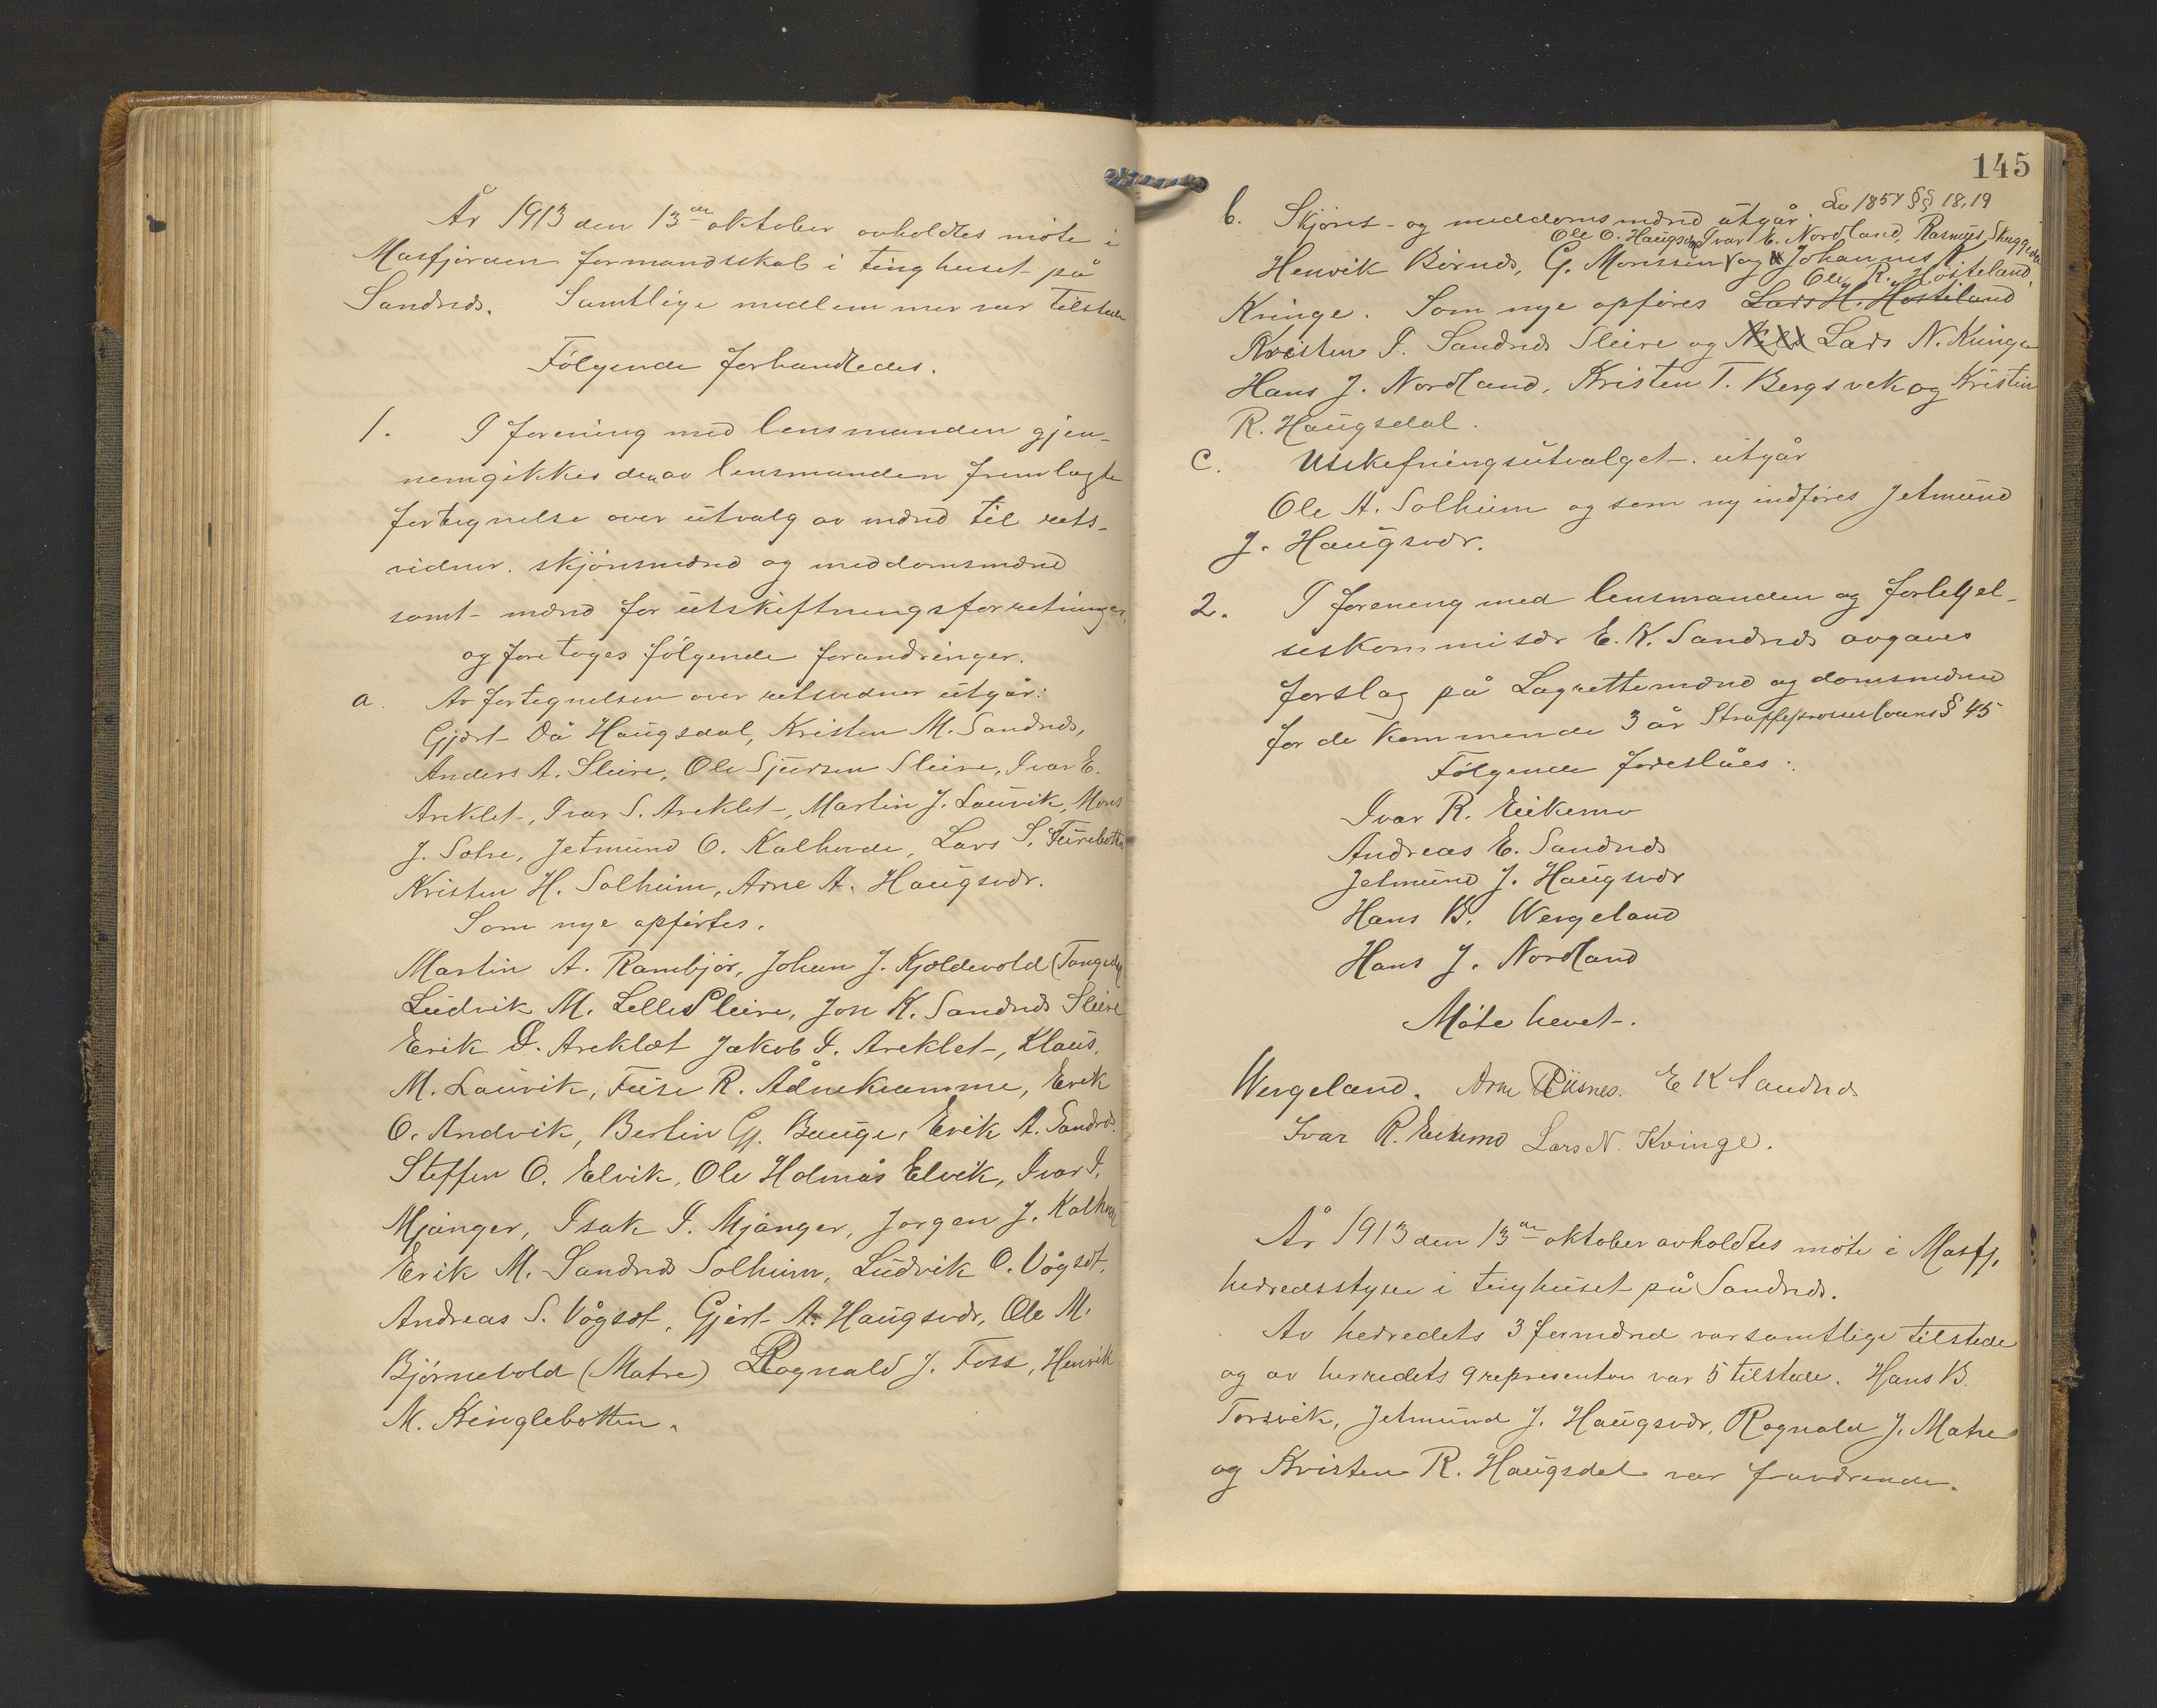 År 1913 den 13de oktober avholdtes møte i
Masfjorden formandsskab i tinghuset på
Sandnæs. Samtlige medlemmer var tilstede
Følgende forhandledes.
1. I forening med lensmanden gjen-
nemgikkes den av lensmanden fremlagte
fortegnelse over utvalg av mænd til rets-
vidner, skjønsmænd og meddomsmænd
samt mænd for utskiftningsforretninger,
og foretoges følgende forandringer.
a. Av fortegnelsen over retsvidner utgår:
Gjert Då Haugsdal, Kristen M. Sandnæs,
Anders A. Sleire, Ole Sjursen Sleire, Ivar E.
Areklet, Ivar S. Areklet, Martin J. Lauvik, Mons
J. Solre, Jetmund O. Kalhovde, Lars S. Furebotten
Kristen H. Solheim, Arne A. Haugsvær.
Som nye opførtes.
Martin A. Rambjør, Johan J. Kjoldevold (Tangedal)
Ludvik M. Lille Sleire, Jon K. Sandnæs Sleire
Erik O. Areklet Jakob I. Areklet, Klaus
M. Lauvik, Feise R. Ådnekvamme, Erik
O. Andvik, Bertin Gj. Bauge, Erik A. Sandnæs
Steffen O. Elvik, Ole Holmås Elvik, Ivar I.
Mjånger, Isak I. Mjånger, Jørgen J. Kalhovde
Erik M. Sandnæs Solheim, Ludvik O. Vågset,
Andreas S. Vågset, Gjert A. Haugsvær, Ole M.
Bjørnevold (Matre) Ragnald J. Foss, Henrik
M. Kringlebotten.
145
Lov 1857 §§ 18, 19
b. Skjøns- og meddomsmænd utgår:
Ole O. Haugsdal Ivar E. Nordland, Rasmus Skuggedal
Henrik Birnæs, G. Monssen og Johannes A
Ole R. Høsteland,
Kvinge. Som nye opføres Lars H. Hosteland
Kristen I. Sandnæs Sleire og Nils Lars N. Kvinge
Hans J. Nordland, Kristen T. Bergsvik og Kristen
R. Haugsdal.
c. Utskiftningsutvalget. utgår
Ole A. Solheim og som ny indføres Jetmund
J. Haugsvær.
2. I forening med lensmanden og forligel-
seskommisær E. K. Sandnæs avgaves
forslag på Lagrettemænd og domsmænd
for de kommende 3 år Straffeprosesslovens § 45
Følgende foreslåes:
Ivar R. Eikemo
Andreas E. Sandnæs
Jetmund J. Haugsvær
Hans B. Wergeland
Hans J. Nordland
Møte hevet.
Wergeland. Arne Riisnes. E K Sandnæs
Ivar R. Eikemo Lars N. Kvinge.
År 1913 den 13de oktober avholdtes møte i Masfj.
herredsstyre i tinghuset på Sandnæs.
Av herredets 3 formænd var samtlige tilstede
og av herredets 9 representan var 5 tilstede. Hans B.
Torsvik, Jetmund J. Haugsvær, Ragnald J. Matre
og Kristen R. Haugsdal var fraværende.